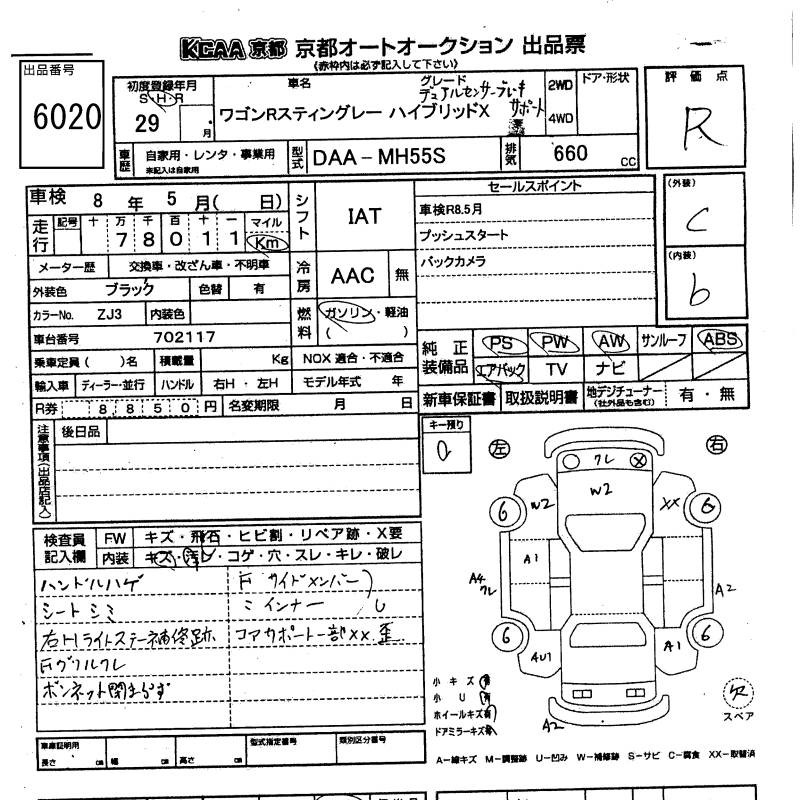 KCAA 京都 京都オートオークション 出品票
(赤枠内は必ず記入して下さい)
出品番号
6020
初度登録年月
S・H・R
29 月
車名
グレード
デュアルセンサーブレーキ
サポート
ワゴンRスティングレー ハイブリッドX
2WD
4WD
ドア・形状
評価点
R
車歴
自家用・レンタ・事業用
未記入は自家用
型式
DAA-MH55S
排気
660 cc
車検 8 年 5 月( 日)
走行
記号 十 万 千 百 十 一 マイル
7 8 0 1 1 Km
シフト
IAT
セールスポイント
車検R8.5月
プッシュスタート
バックカメラ
(外装)
C
(内装)
b
メーター歴 交換車・改ざん車・不明車
冷房
AAC 無
外装色 ブラック 色替 有
カラーNo. ZJ3 内装色
燃料
ガソリン・軽油
( )
車台番号 702117
乗車定員( )名 積載量 Kg NOX 適合・不適合
輸入車 ディーラー・並行 ハンドル 右H・左H モデル年式 年
R券 8 8 5 0 円 名変期限 月 日
純正装備品
PS PW AW サンルーフ ABS
エアバック TV ナビ
新車保証書 取扱説明書 地デジチューナー(社外品も含む) 有・無
注意事項(出品店記入)
後日品
キー残り
左
右
クレ
W2
W2
XX
6
6
A1
A4
クレ
A2
6
6
4U1
A1
A2
検査員記入欄
FW キズ・飛石・ヒビ割・リペア跡・X要
内装 キズ・汚レ・コゲ・穴・スレ・キレ・破レ
ハンドルハゲ
シートシミ
右Hライトステー補修跡
Fグリルクレ
ボンネット閉まらず
Fサイドメンバー
ミ インナー
U
コアサポート一部XX.歪
小キズ有
小U有
ホイールキズ有
ドアミラーキズ有
欠
スペア
車庫証明用
長さ cm 幅 cm 高さ cm
型式指定番号
類別区分番号
A-線キズ M-調整跡 U-凹み W-補修跡 S-サビ C-腐食 XX-取替済